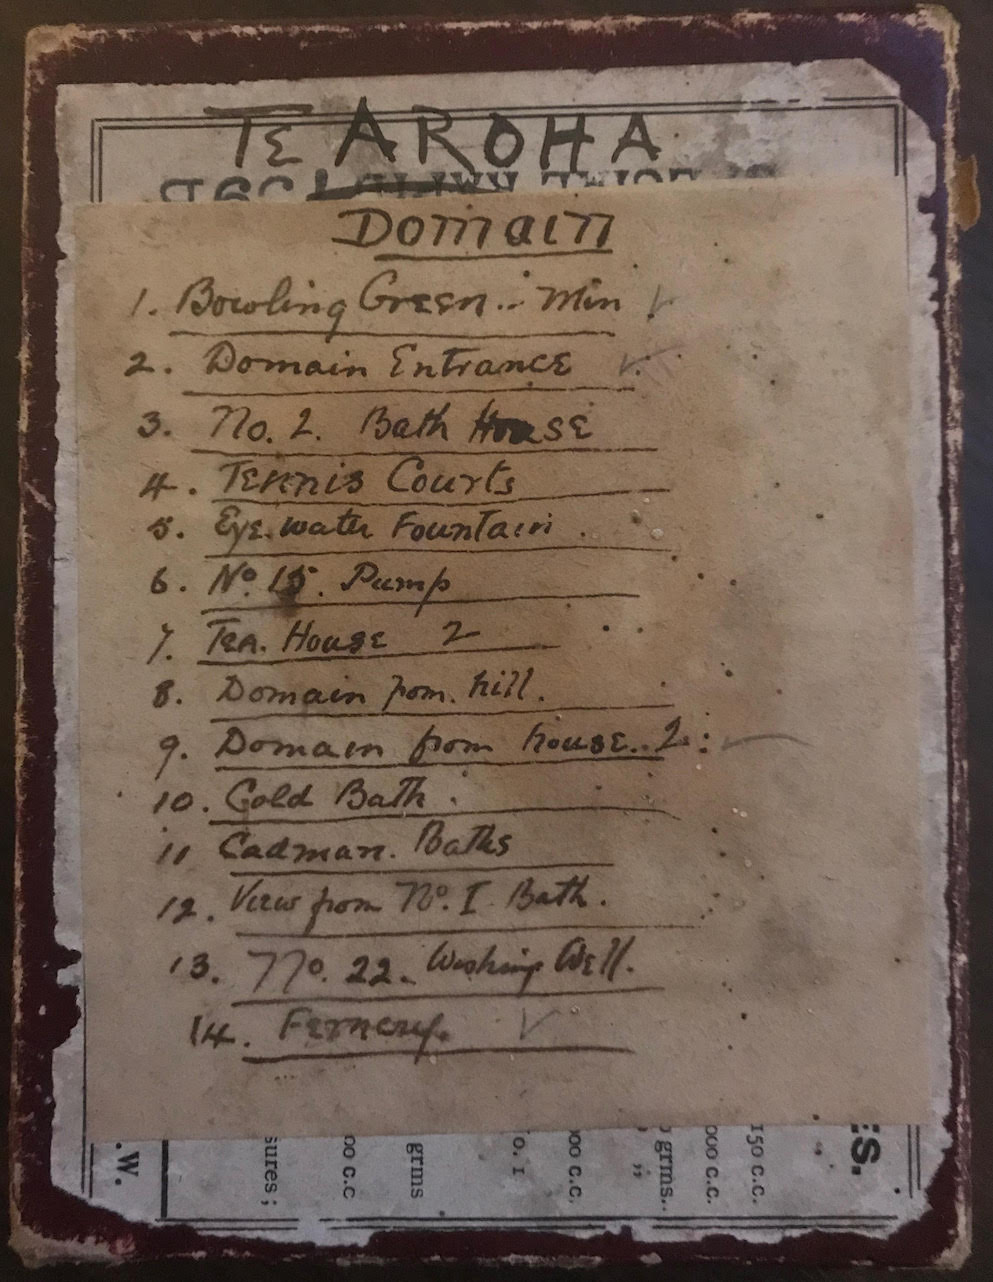 TE AROHA
Domain
1. Bowling Green.. Min ✓
2. Domain Entrance ✓
3. No. 2. Bath House
4. Tennis Courts
5. Eye. water Fountain.
6. No 15. Pump
7. Tea. House 2
8. Domain from hill.
9. Domain from house.. 2:
10. Cold Bath.
11 Cadman. Baths
12. View from No. I Bath.
13. No. 22. Wishing Well.
14. Fernery. ✓
.W.
sures;
00 c.c
grms
o. 1
000 c.c.
grms.
000 c.c.
150 c.c.
ES.